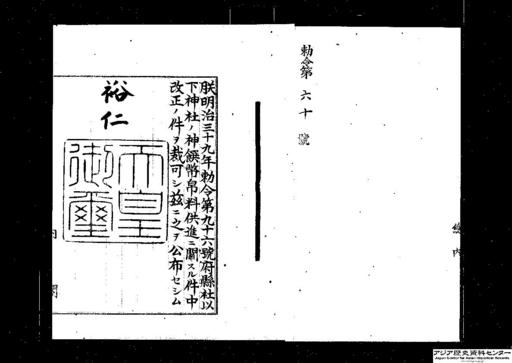 勅令第六十號
朕明治三十九年勅令第九十六號府縣社以
下神社ノ神饌幣帛料供進ニ關スル件中
改正ノ件ヲ裁可シ茲ニ之ヲ公布セシム
裕仁
天皇
御璽
内
閣
内
アジア歴史資料センター
Japan Center for Asian Historical Records